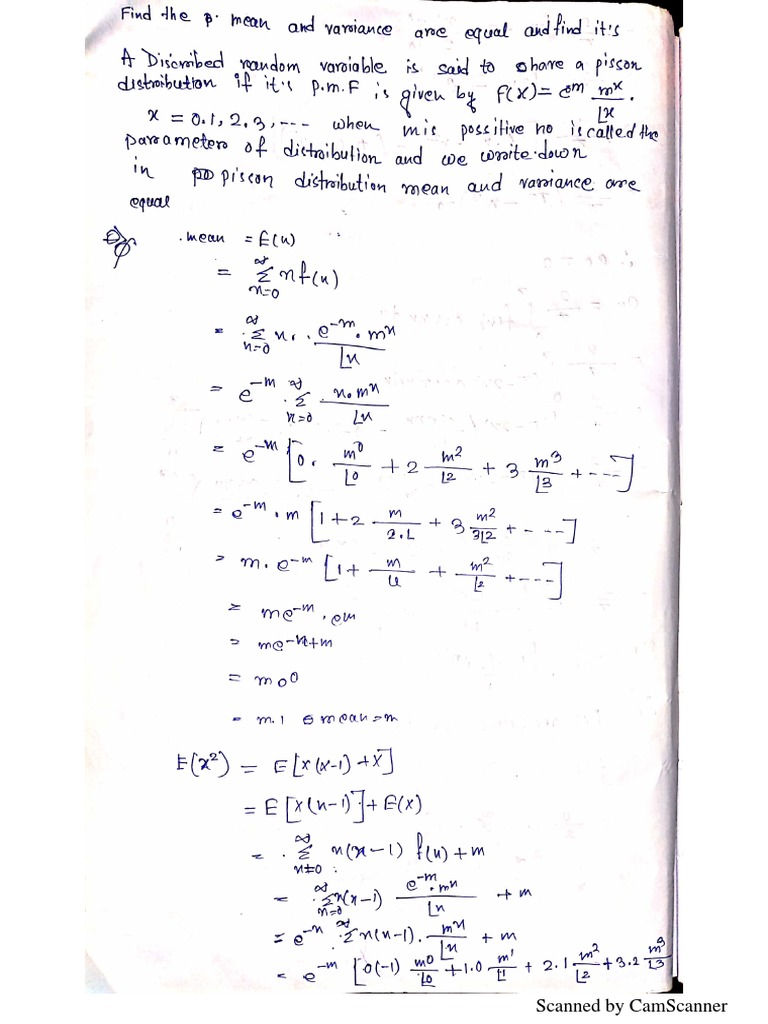 Find the p. mean and varoiance aroe equal and find it's
A Discribed random varoiable is said to share a pisson
distroibution if it's p.m.F is given by f(x) = e^m m^x/⌊x.
x = 0.1, 2, 3, --- when m is possitive no is called the
paroameter of distroibution and we wroite down
in piscon distroibution mean and varoiance aroe
equal
mean = E(x)
= ∞Σn=0 n f(x)
= ∞Σn=0 x. e^-m . m^x/⌊x
= e^-m ∞Σx=0 x. m^x/⌊x
= e^-m [0. m^0/⌊0 + 2 m^2/⌊2 + 3 m^3/⌊3 + ---]
= e^-m . m [1 + 2 m/2.1 + 3 m^2/3⌊2 + ----]
= m. e^-m [1 + m/⌊1 + m^2/⌊2 + ---]
= me^-m . em
= me^-m+m
= m o^0
= m.1 mean = m
E(x^2) = E[x(x-1) + x]
= E[x(x-1)] + E(x)
= ∞Σx=0 x(x-1) f(x) + m
= ∞Σx=0 x(x-1) e^-m . m^x/⌊x + m
= e^-n ∞Σ x(x-1). m^x/⌊x + m
= e^-m [0(-1) m^0/⌊0 + 1.0 m^1/⌊1 + 2.1 m^2/⌊2 + 3.2 m^3/⌊3
Scanned by CamScanner